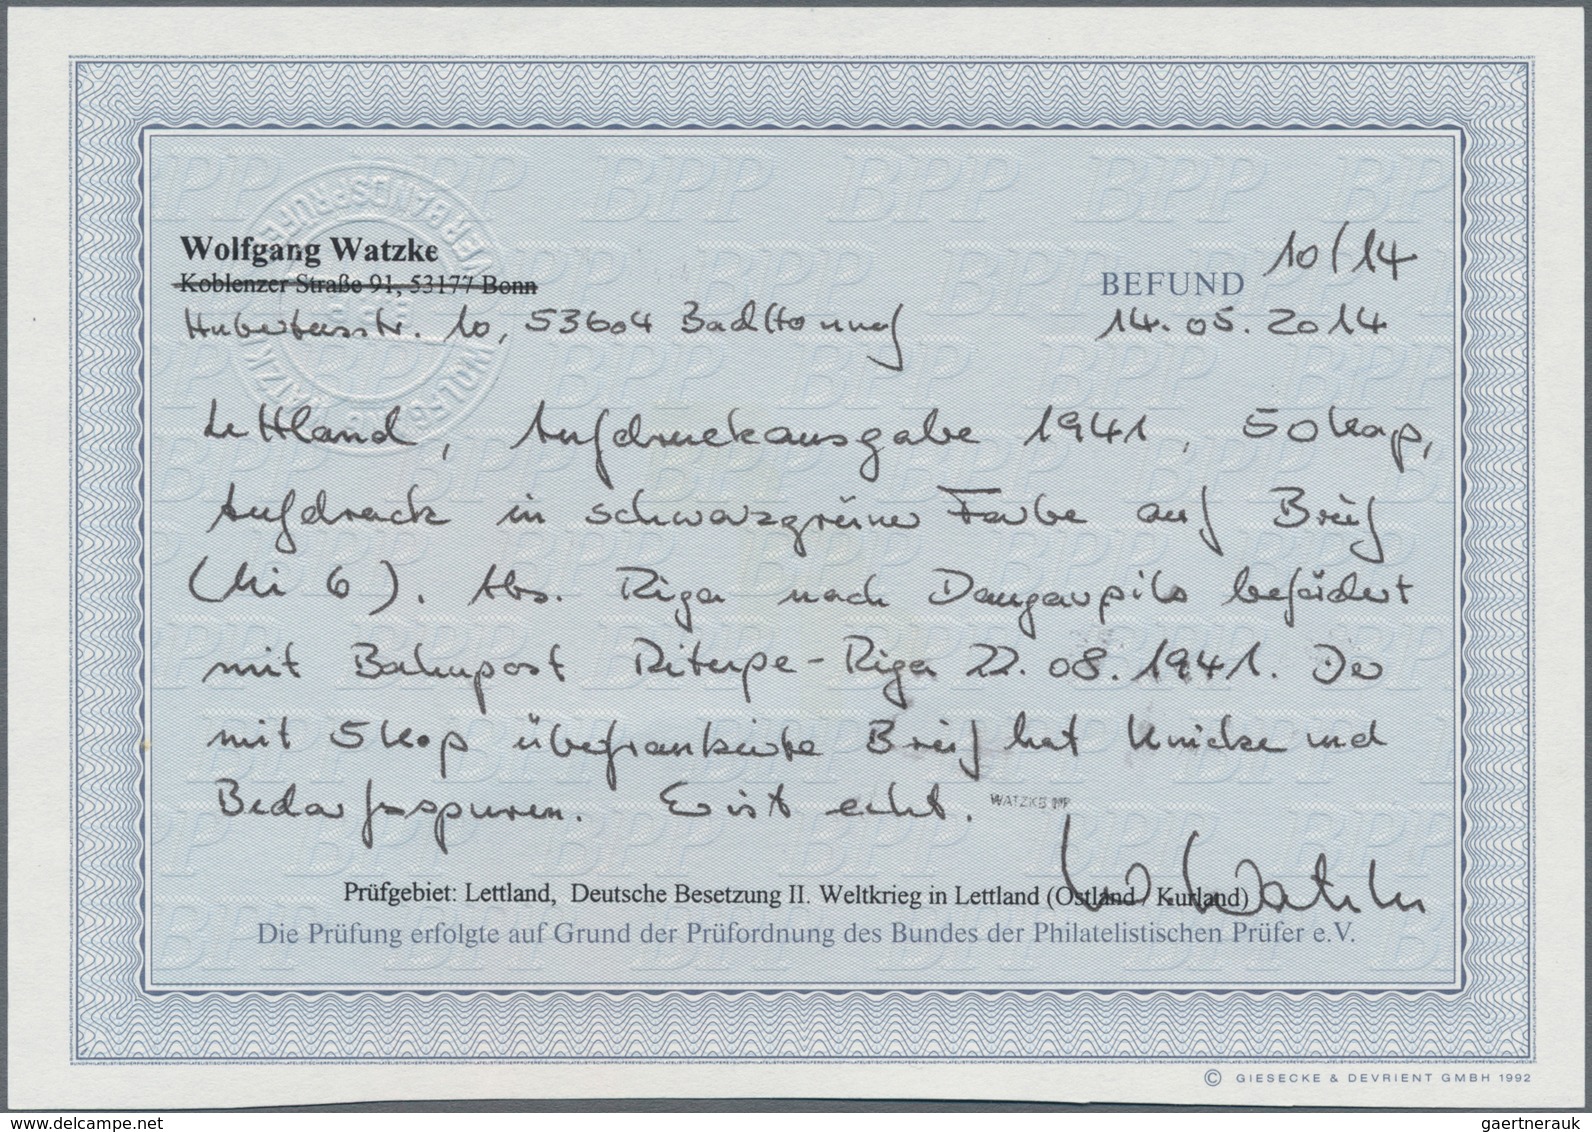 Wolfgang Watzke
Koblenzer Straße 91, 53177 Bonn
Hubertusstr. 10, 53604 Bad Honnef
BEFUND 10/14
14.05.2014
Lettland, Aufdruckausgabe 1941, 50 Kop,
Aufdruck in schwarzgrüner Farbe auf Brief
(Mi 6). Abs. Riga nach Daugavpils befördert
mit Bahnpost Riterpe-Riga 22.08.1941. Der
mit 5 Kop überfrankierte Brief hat Knicke und
Bedarfsspuren. Er ist echt. WATZKE BPP
W. Watzke
Prüfgebiet: Lettland, Deutsche Besetzung II. Weltkrieg in Lettland (Ostland / Kurland)
Die Prüfung erfolgte auf Grund der Prüfordnung des Bundes der Philatelistischen Prüfer e.V.
© GIESECKE & DEVRIENT GMBH 1992
www.delcampe.net
gaertnerauk